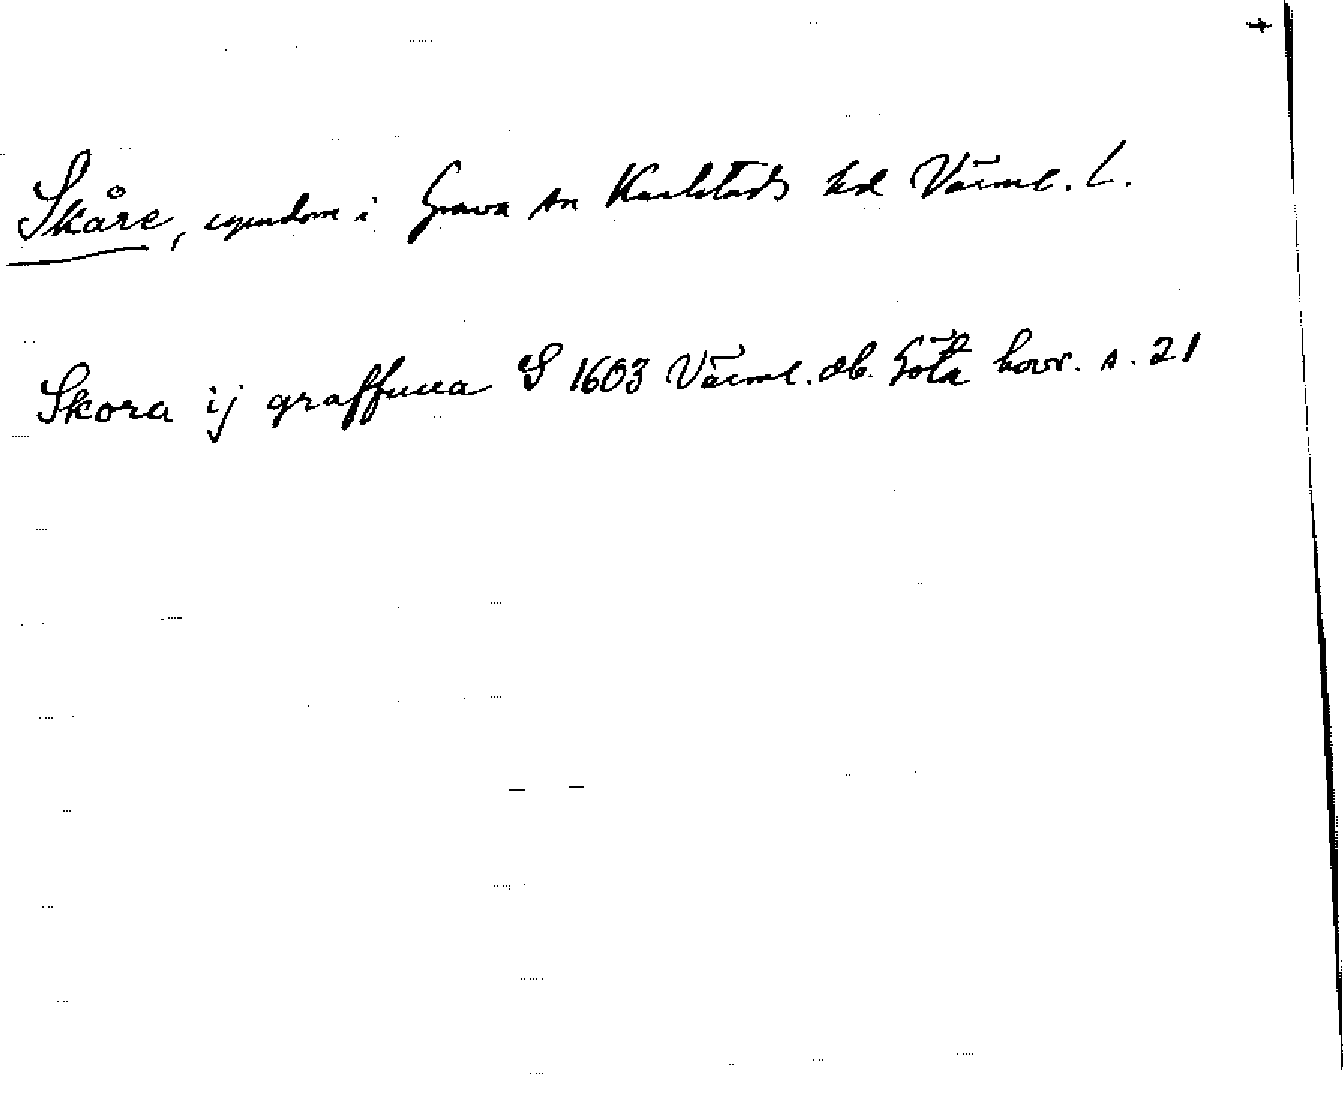 Skåre, egendom i Grava sn Karlstads hd Värml. L.
Skora ij graffuua S 1603 Värml. db. Göta hovr. s. 21